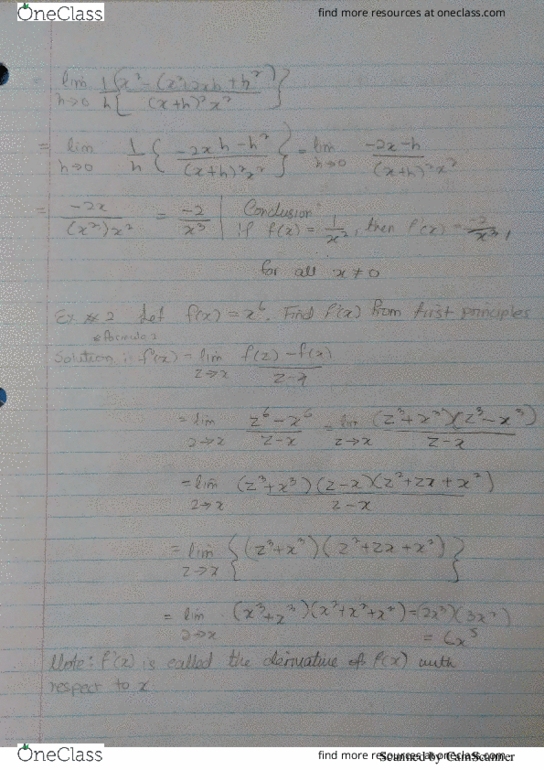 OneClass
find more resources at oneclass.com
= lim h→0 1/h { x² - (x²+2xh+h²) / (x+h)²x² }
= lim h→0 1/h { -2xh-h² / (x+h)²x² } = lim h→0 -2x-h / (x+h)²x²
= -2x / (x²)x² = -2/x³ | Conclusion:
if f(x) = 1/x², then f'(x) = -2/x³,
for all x≠0
Ex # 2 Let f(x) = x⁶. Find f'(x) from first principles
Formula 2
Solution: f'(x) = lim z→x f(z)-f(x) / z-x
= lim z→x z⁶-x⁶ / z-x = lim z→x (z³+x³)(z³-x³) / z-x
= lim z→x (z³+x³)(z-x)(z²+zx+x²) / z-x
= lim z→x { (z³+x³)(z²+zx+x²) }
= lim z→x (x³+x³)(x²+x²+x²) = (2x³)(3x²)
= 6x⁵
Note: f'(x) is called the derivative of f(x) with
respect to x
OneClass
find more resources at oneclass.com
Scanned by CamScanner